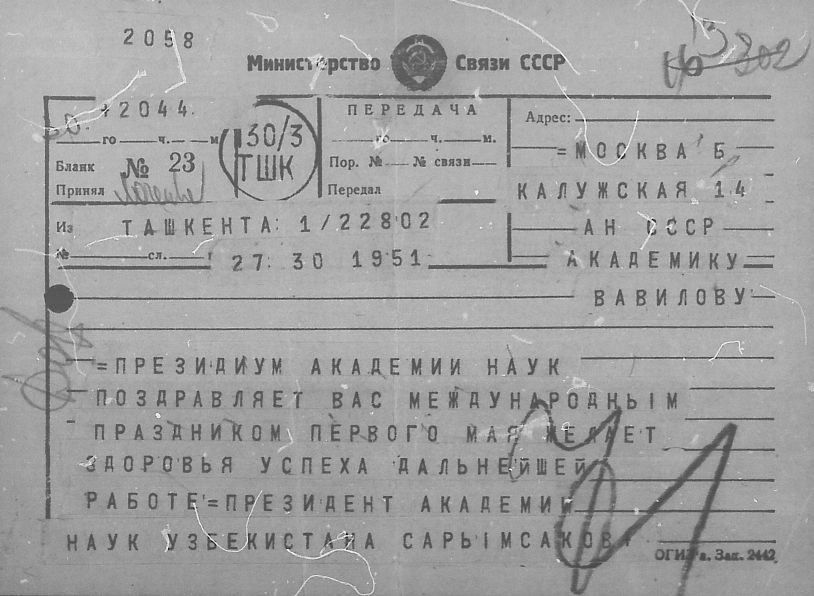 2058
Министерство Связи СССР
302
2044
го ч. м
Бланк № 23
Принял
30/3
ТШК
ПЕРЕДАЧА
го ч. м.
Пор. № № связи
Передал
Адрес:
=МОСКВА Б
КАЛУЖСКАЯ 14
АН СССР
АКАДЕМИКУ
ВАВИЛОВУ
Из ТАШКЕНТА: 1/22802
№ сл.
27. 30 1951
=ПРЕЗИДИУМ АКАДЕМИИ НАУК
ПОЗДРАВЛЯЕТ ВАС МЕЖДУНАРОДНЫМ
ПРАЗДНИКОМ ПЕРВОГО МАЯ ЖЕЛАЕТ
ЗДОРОВЬЯ УСПЕХА ДАЛЬНЕЙШЕЙ
РАБОТЕ=ПРЕЗИДЕНТ АКАДЕМИИ
НАУК УЗБЕКИСТАНА САРЫМСАКОВ
Зак. 2442